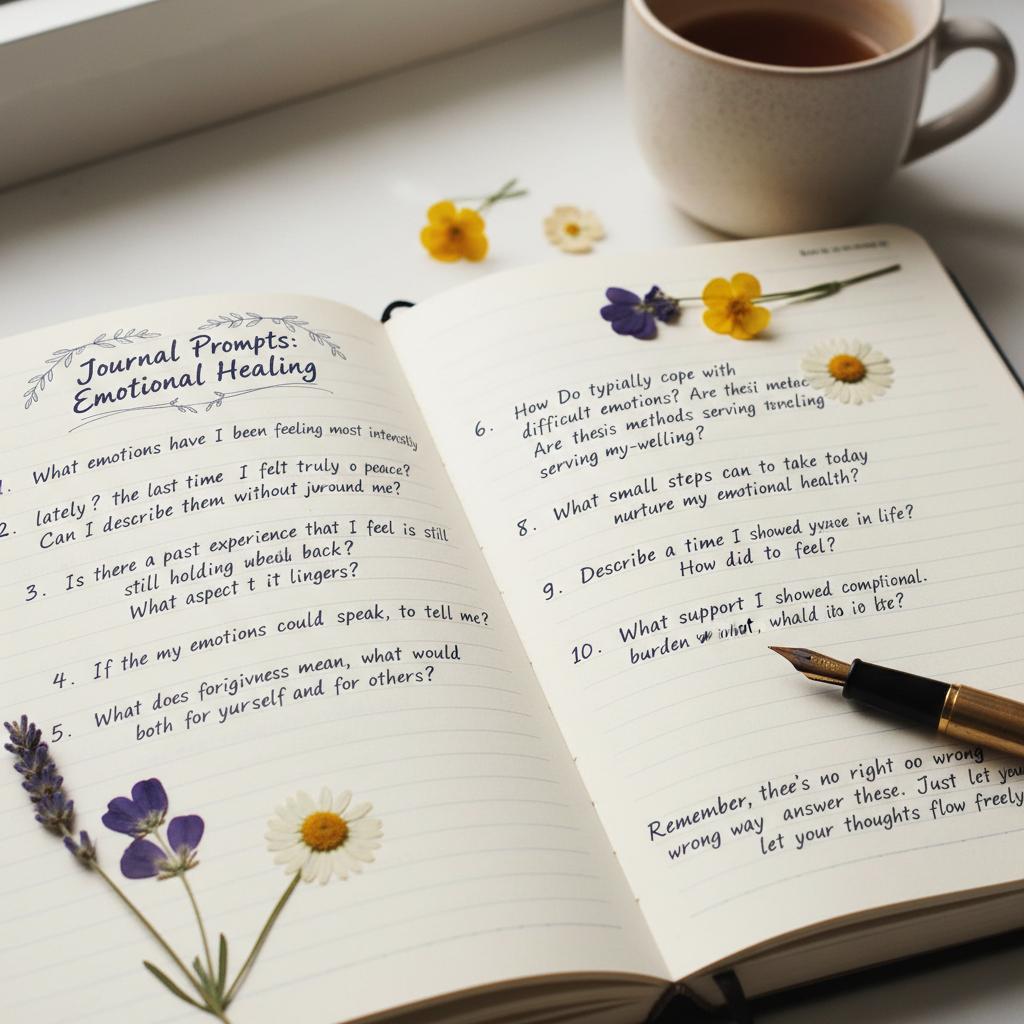 Journal Prompts:
Emotional Healing
1. What emotions have I been feeling most intensely
2. lately? the last time I felt truly o peace?
Can I describe them without juround me?
3. Is there a past experience that I feel is still
still holding back?
What aspect t it lingers?
4. If the my emotions could speak, to tell me?
5. What does forigivness mean, what would
both for yurself and for others?
6. How Do typially cope with
difficult emotions? Are thesii
Are thesis methods serving
serving my-welling?
What small steps can to take today
8. nurture my emotional health?
9. Describe a time I showed in life?
How did to feel?
10. What support I showed complional.
burden whald ito io
Remember, thee's no right oo wrong
wrong way answer these. Just let you
let your thoughts flow freely